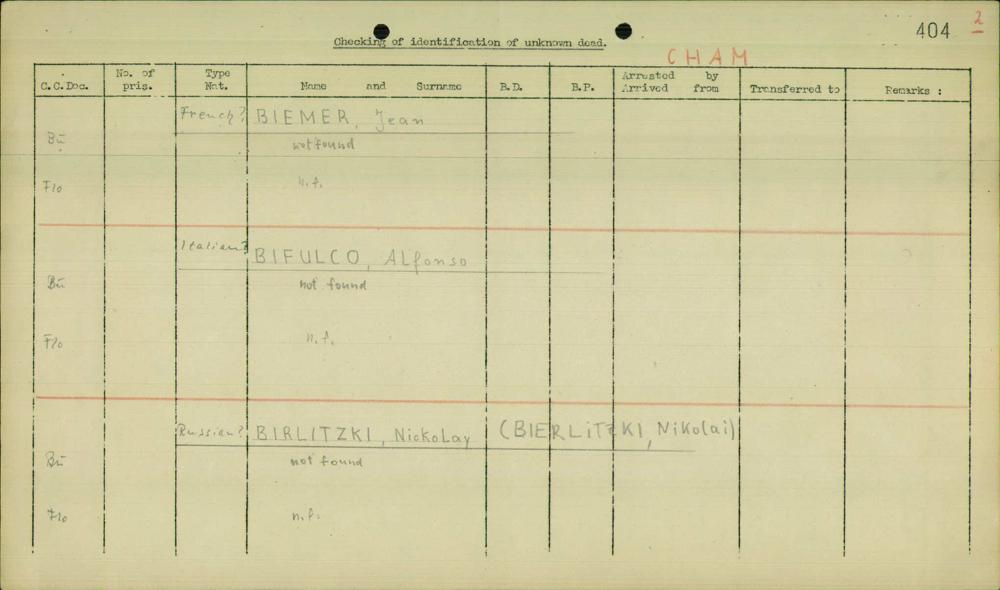 404 2
Checking of identification of unknown dead.
CHAM
C.C.Doc. No. of pris. Type Nat. Name and Surname B.D. B.P. Arrested by Arrived from Transferred to Remarks :
French? BIEMER, Jean
Bü not found
Flo n.f.
Italian? BIFULCO, Alfonso
Bü not found
Flo n.f.
Russian? BIRLITZKI, Nickolay (BIERLITZKI, Nikolai)
Bü not found
Flo n.f.